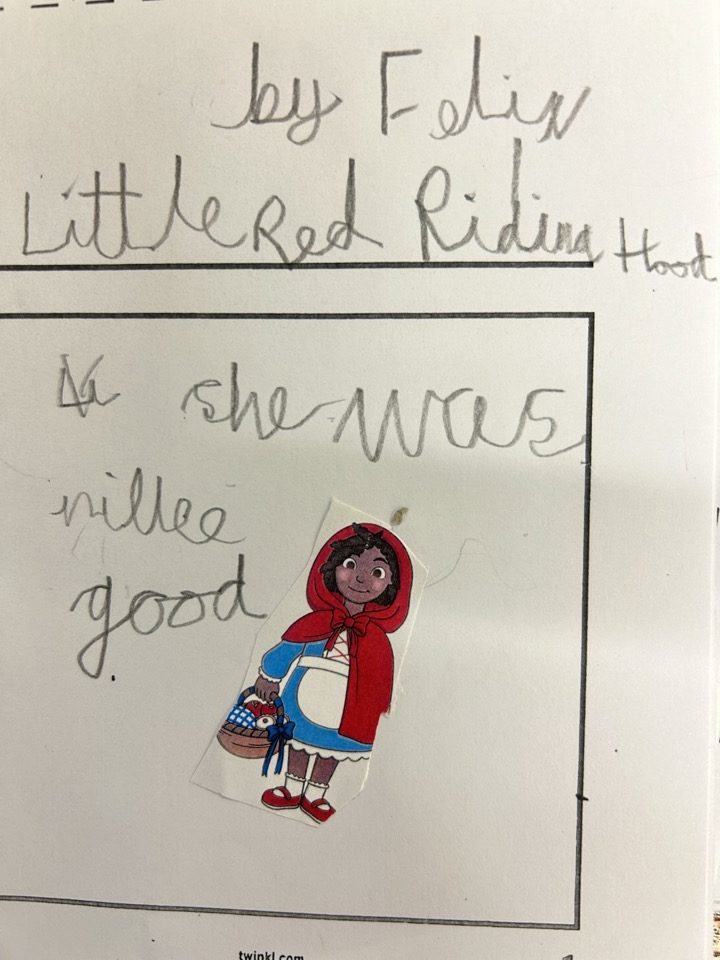 by Felix
Little Red Riding Hood
she was
nillee
good
twinkl.com